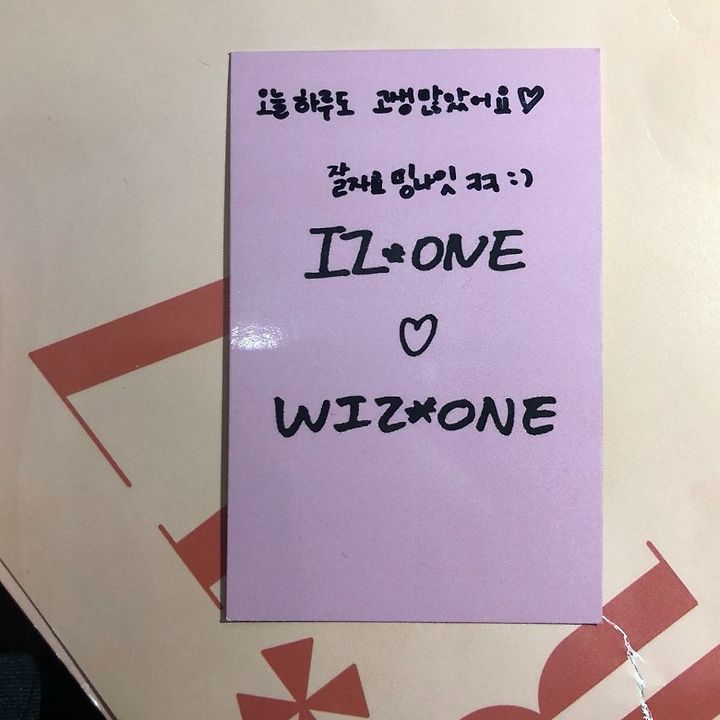 오늘 하루도 고생 많았어요♡
잘자료 밍나잇 ㅋㅋ :)
IZ*ONE
♡
WIZ*ONE